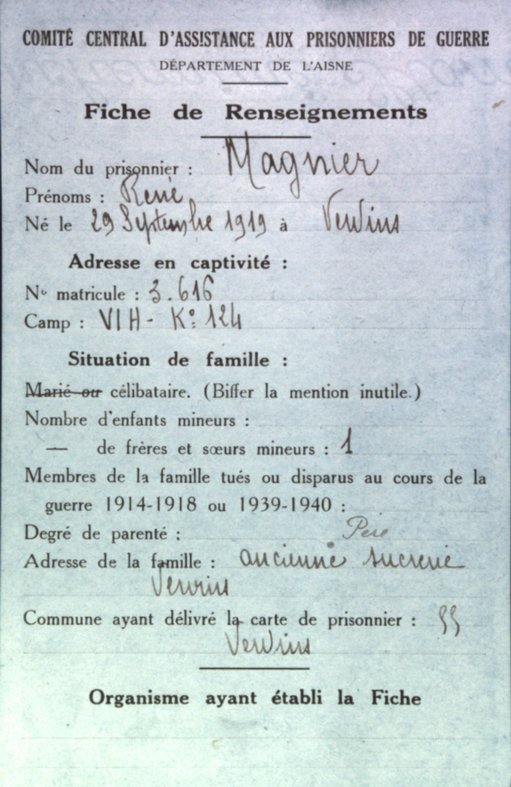 COMITÉ CENTRAL D'ASSISTANCE AUX PRISONNIERS DE GUERRE
DÉPARTEMENT DE L'AISNE
Fiche de Renseignements
Nom du prisonnier : Magnier
Prénoms : René
Né le 29 Septembre 1919 à Vervins
Adresse en captivité :
No matricule : 3.616
Camp : VI H - Ko 124
Situation de famille :
Marié ou célibataire. (Biffer la mention inutile.)
Nombre d'enfants mineurs :
— de frères et sœurs mineurs : 1
Membres de la famille tués ou disparus au cours de la
guerre 1914-1918 ou 1939-1940 :
Degré de parenté : Pere
Adresse de la famille : ancienne sucrerie
Vervins
Commune ayant délivré la carte de prisonnier :
Vervins
Organisme ayant établi la Fiche